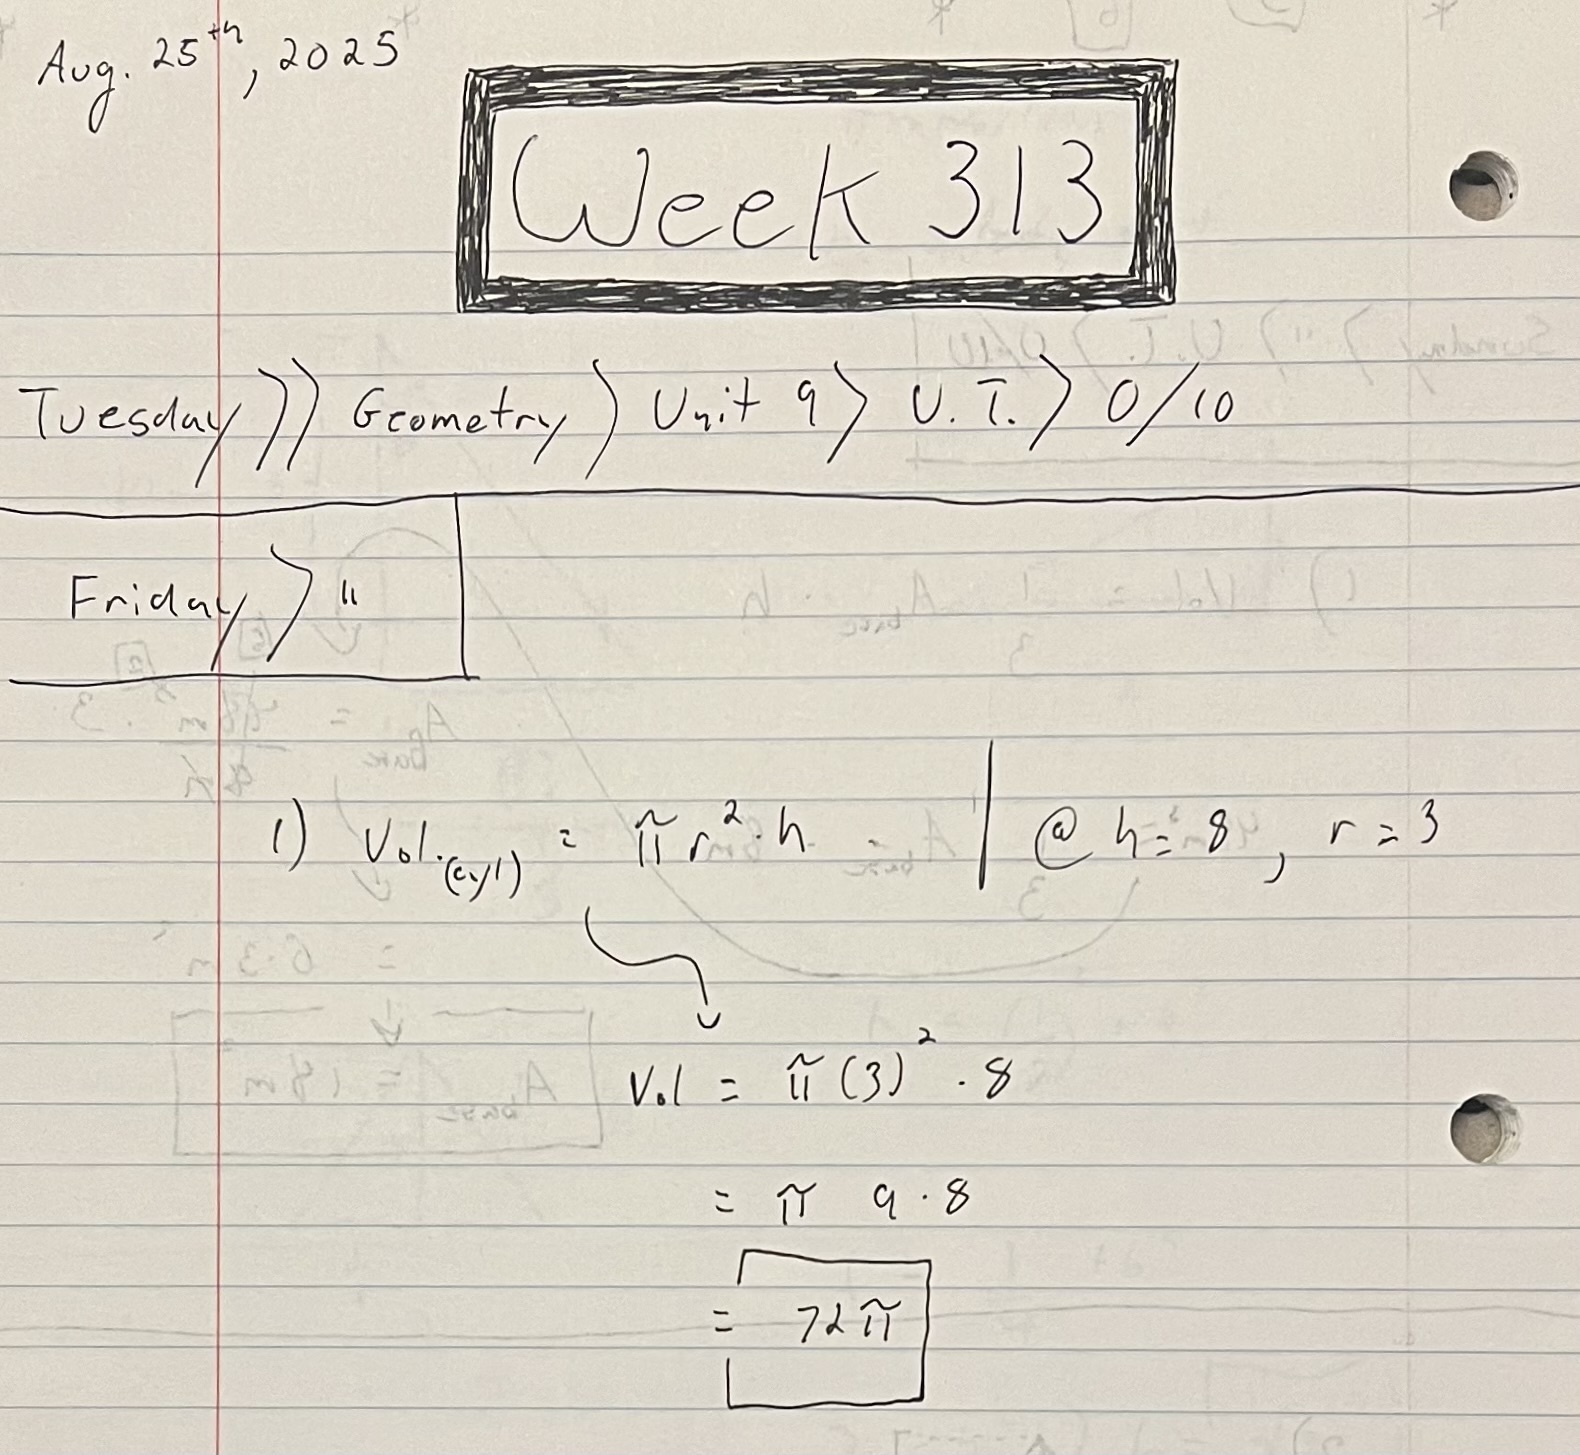 Aug. 25th, 2025
Week 313
Tuesday >> Geometry > Unit 9 > U.T. > 0/10
Friday > "
1) Vol.(cyl) = π r² · h | @ h = 8, r = 3
Vol = π (3)² · 8
= π 9 · 8
= 72π